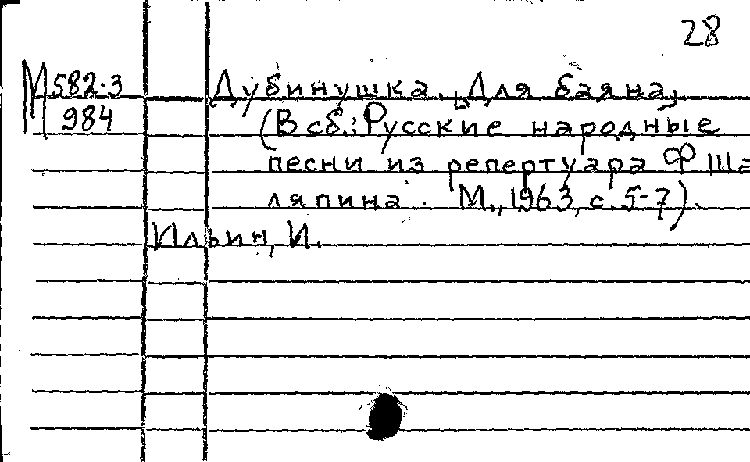 28
М582.3 Дубинушка. [Для баяна]
984 (В сб.: Русские народные
песни из репертуара Ф Ша
ляпина. М., 1963, с. 5-7).
Ильин, И.